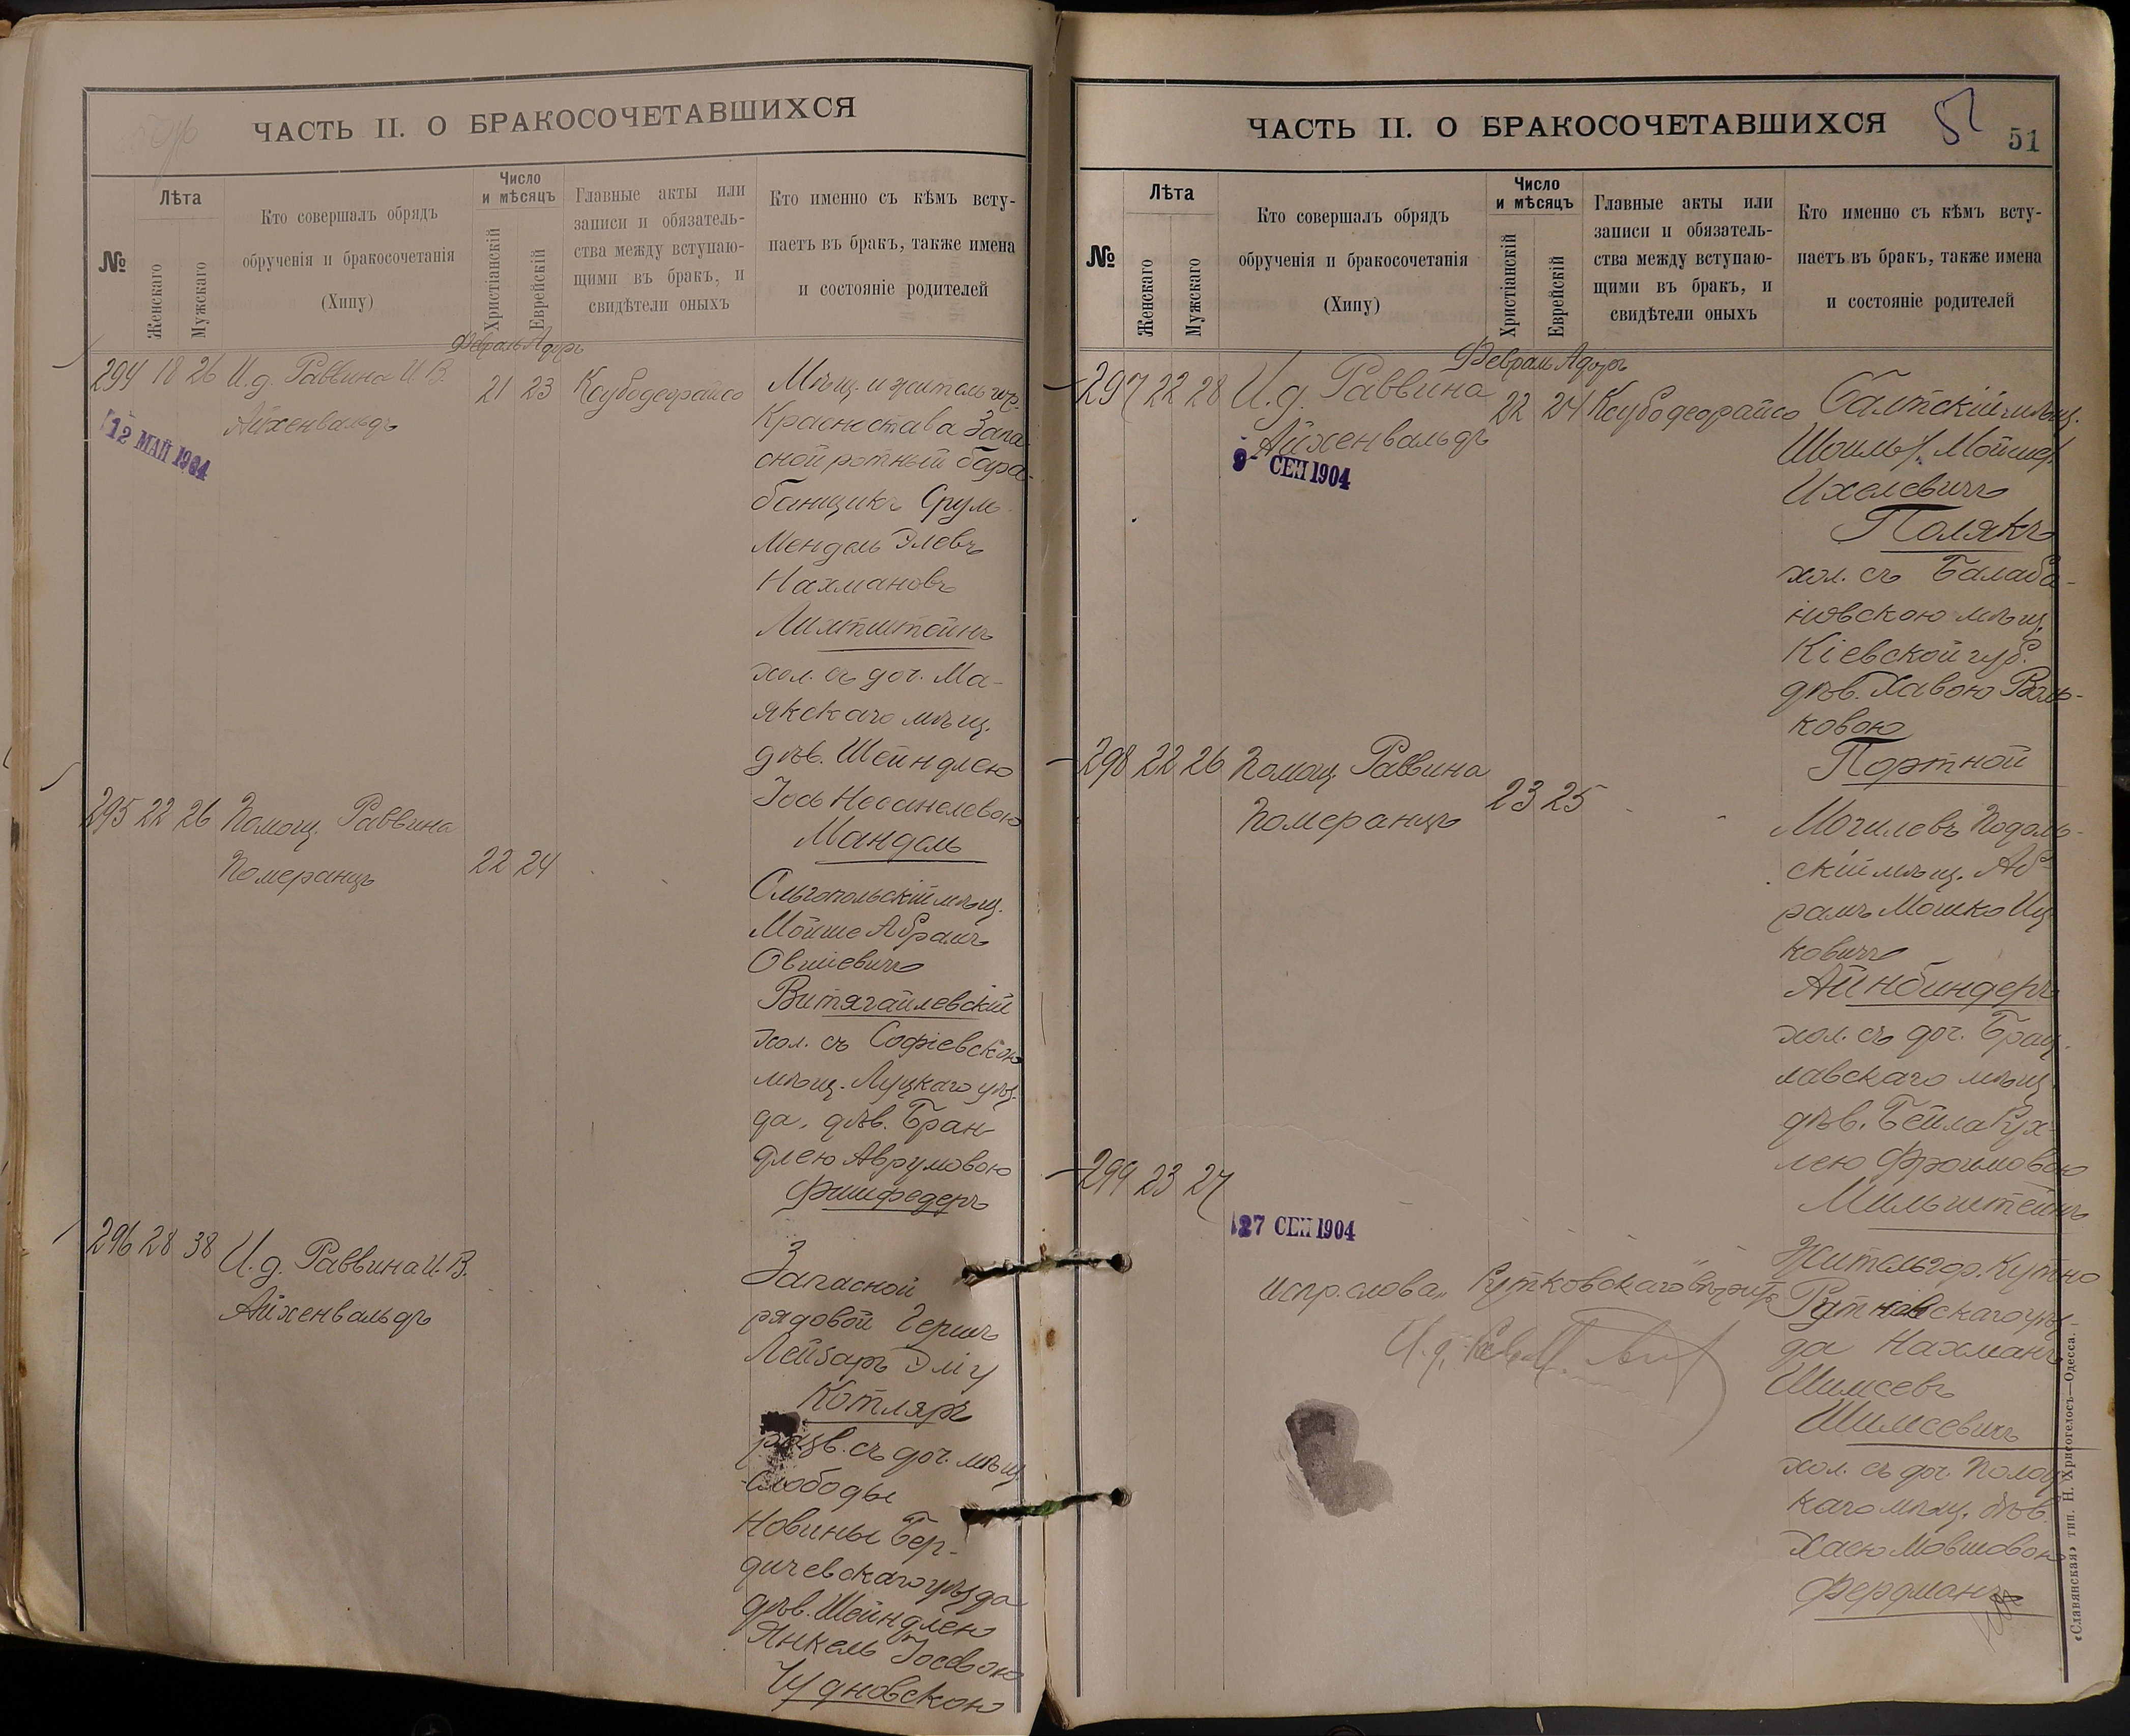 ЧАСТЬ II. О БРАКОСОЧЕТАВШИХСЯ
№
Лѣта
Женскаго
Мужскаго
Кто совершалъ обрядъ
обрученія и бракосочетанія
(Хипу)
Число
и мѣсяцъ
Христіанскій
Еврейскій
Главные акты или
записи и обязатель-
ства между вступаю-
щими въ бракъ, и
свидѣтели оныхъ
Кто именно съ кѣмъ всту-
паетъ въ бракъ, также имена
и состояніе родителей
Февраль Адоръ
294 18 26 И.д. Раввина И.В.
Айхенвальдъ
21 23
12 МАЙ 1904
Мѣщ. и житель гор.
Красностава Запа-
сной ротный бара-
банщикъ Срулъ
Мендель Элевъ
Нахмановъ
хол. съ доч. Ма-
якскаго мѣщ.
дѣв. Шейндлею
Мандель
295 22 26 Помощ. Раввина
Померанцъ
22 24
Ольгопольскій мѣщ.
Мойше Абрамъ
Овшіевичъ
Витягайлевскій
хол. съ Софіевскою
мѣщ. Луцкаго уѣз-
да, дѣв. Бран-
длею Аврумовою
Фишфедеръ
296 28 38 И.д. Раввина И.В.
Айхенвальдъ
Запасной
рядовой Гершъ
Лейзаръ Эліу
Котляръ
разв. съ доч. мѣщ.
Слободы
Новины Бер-
дичевскаго уѣзда
дѣв. Шейндлею
Янкель Іосевою
Чудновскою
ЧАСТЬ II. О БРАКОСОЧЕТАВШИХСЯ
51
51
№
Лѣта
Женскаго
Мужскаго
Кто совершалъ обрядъ
обрученія и бракосочетанія
(Хипу)
Число
и мѣсяцъ
Христіанскій
Еврейскій
Главные акты или
записи и обязатель-
ства между вступаю-
щими въ бракъ, и
свидѣтели оныхъ
Кто именно съ кѣмъ всту-
паетъ въ бракъ, также имена
и состояніе родителей
Февраль Адоръ
297 22 28 И.д. Раввина
Айхенвальдъ
22 24
9 СЕН 1904
Балтскій мѣщ.
Мойше
Ихелевичъ
Полякъ
хол. съ Балаба-
новскою мѣщ.
Кіевской губ.
дѣв. Хавою Воль-
ковою
Портной
298 22 26 Помощ. Раввина
Померанцъ
23 25
Могилевъ Подоль-
скій мѣщ. Аб-
рамъ Мошко Иц-
ковичъ
Айнбиндеръ
хол. съ доч. Брац-
лавскаго мѣщ.
дѣв. Бейла Рух-
лею Фроимовою
Мильштейнъ
299 23 27
27 СЕН 1904
Испр. слова
Житель гор. Кутно
да Нахманъ
Шимсевъ
Шимсевичъ
хол. съ доч. Полоц-
каго мѣщ. дѣв.
Хасю Мовшовою
Фердманъ
«Славянская» тип. Н. Хрисогелосъ—Одесса.